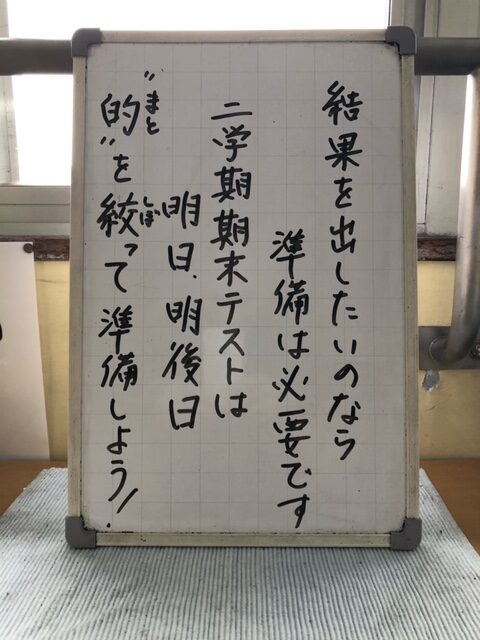 結果を出したいのなら
準備は必要です
二学期期末テストは
明日、明後日
"的"を絞って準備しよう!
まと
しぼ